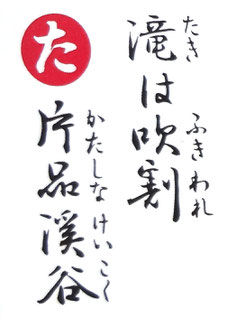 た
滝は吹割
たき ふきわれ
片品渓谷
かたしな けいこく